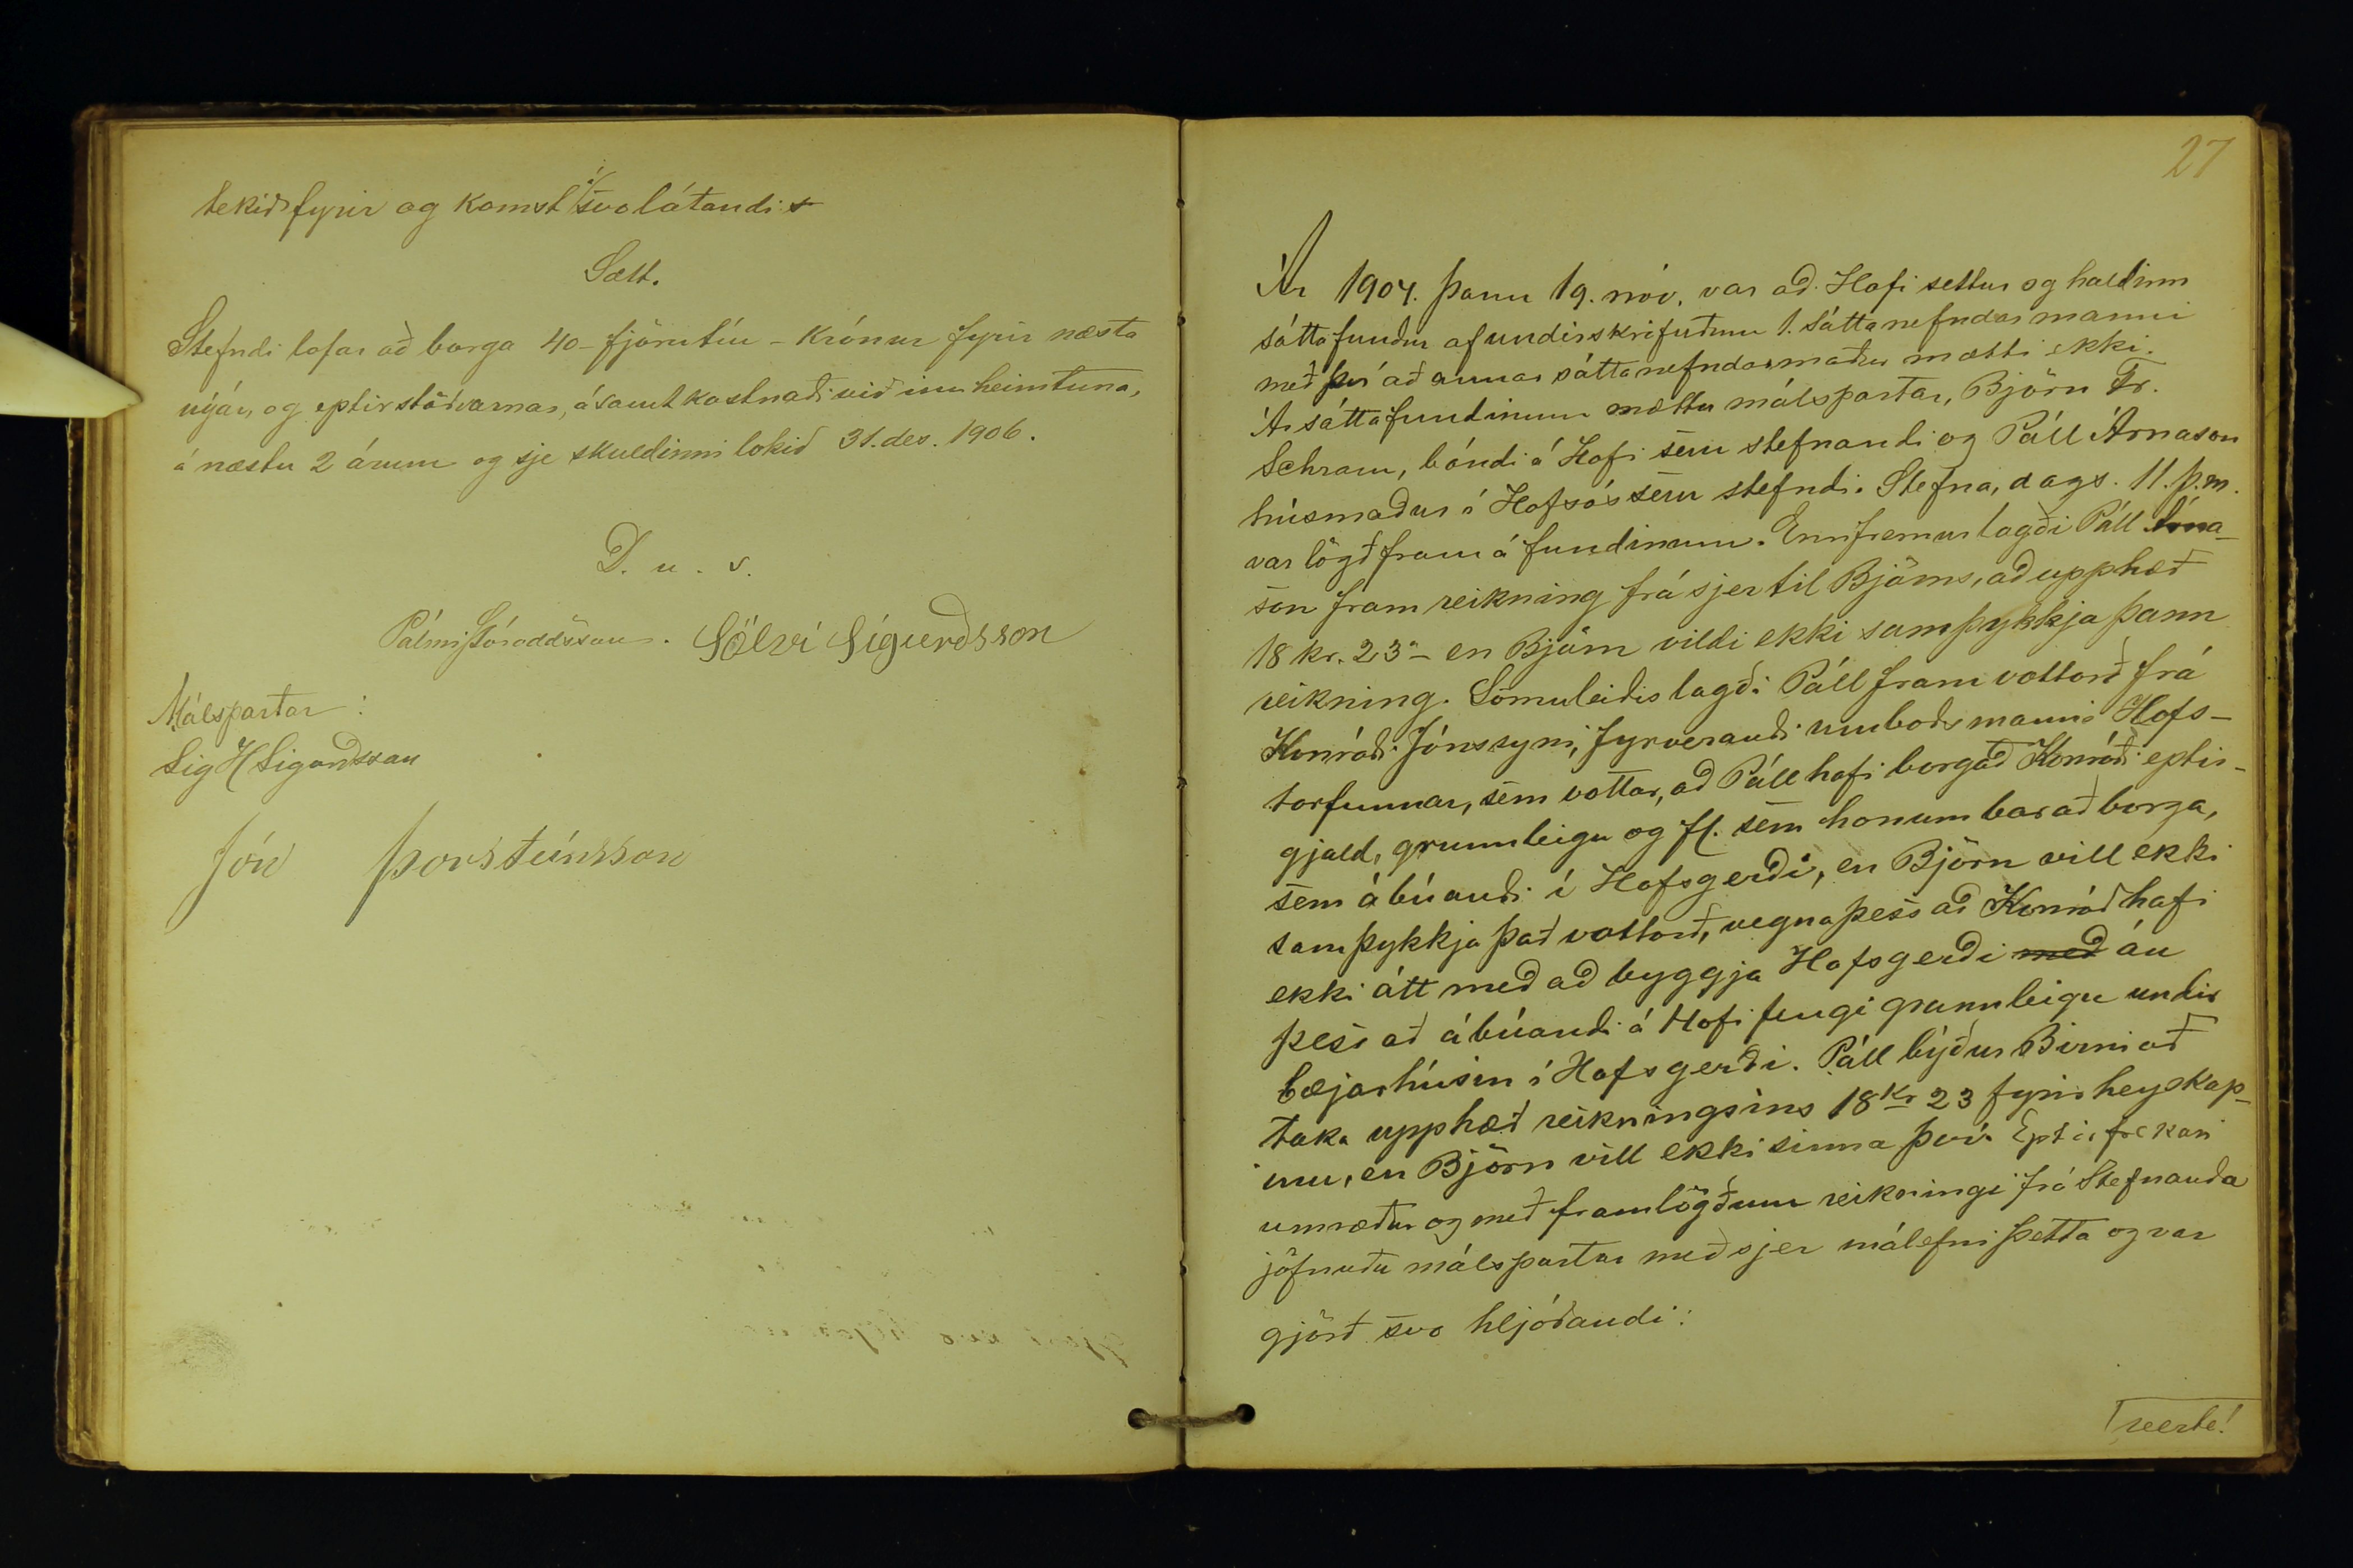 tekið fyrir og komst í svolátandi
Sætt.
Stefndi lofar að borga 40 - fjörutíu - krónur fyrir næsta
nýár, og eptirstöðvarnar, ásamt kostnaði við innheimtuna,
á næstu 2 árum og sje skuldinni lokið 31. des. 1906.
D. u. s.
Pálmi Þóroddsson. Sölvi Sigurðsson
Málspartar:
Sig H Sigurdsson
Jón Þorsteinsson
27
Ár 1904. þann 19. nóv. var að Hofi settur og haldinn
sáttafundur af undirskrifuðum 1. sáttanefndarmanni
með því að annar sáttanefndarmaður mætti ekki.
Á sáttafundinum mættu málspartar, Björn Fr.
Schram, bóndi á Hofi sem stefnandi og Páll Árnason
húsmaður í Hofsós sem stefndi. Stefna, dags. 11. þ.m.
var lögð fram á fundinum. Ennfremur lagði Páll Árna-
son fram reikning frá sjer til Björns, að upphæð
18 kr. 23 a - en Björn vildi ekki samþykkja þann
reikning. Sömuleiðis lagði Páll fram vottorð frá
Konráði Jónssyni, fyrverandi umboðsmanni Hofs-
torfunnar, sem vottar, að Páll hafi borgað Konráði eptir-
gjald, grunnleigu og fl. sem honum bar að borga,
sem ábúandi í Hofsgerði, en Björn vill ekki
samþykkja það vottorð, vegna þess að Konráð hafi
ekki átt með að byggja Hofsgerði með án
þess að ábúandi á Hofi fengi grunnleigu undir
bæjarhúsin í Hofsgerði. Páll býður Birni að
taka upphæð reikningsins 18 kr 23 fyrir heyskap-
inn, en Björn vill ekki sinna því. Eptir frekari
umræður og með framlögðum reikningi frá Stefnanda
jöfnuðu málspartar með sjer málefni þetta og var
gjörð svo hljóðandi:
verte!